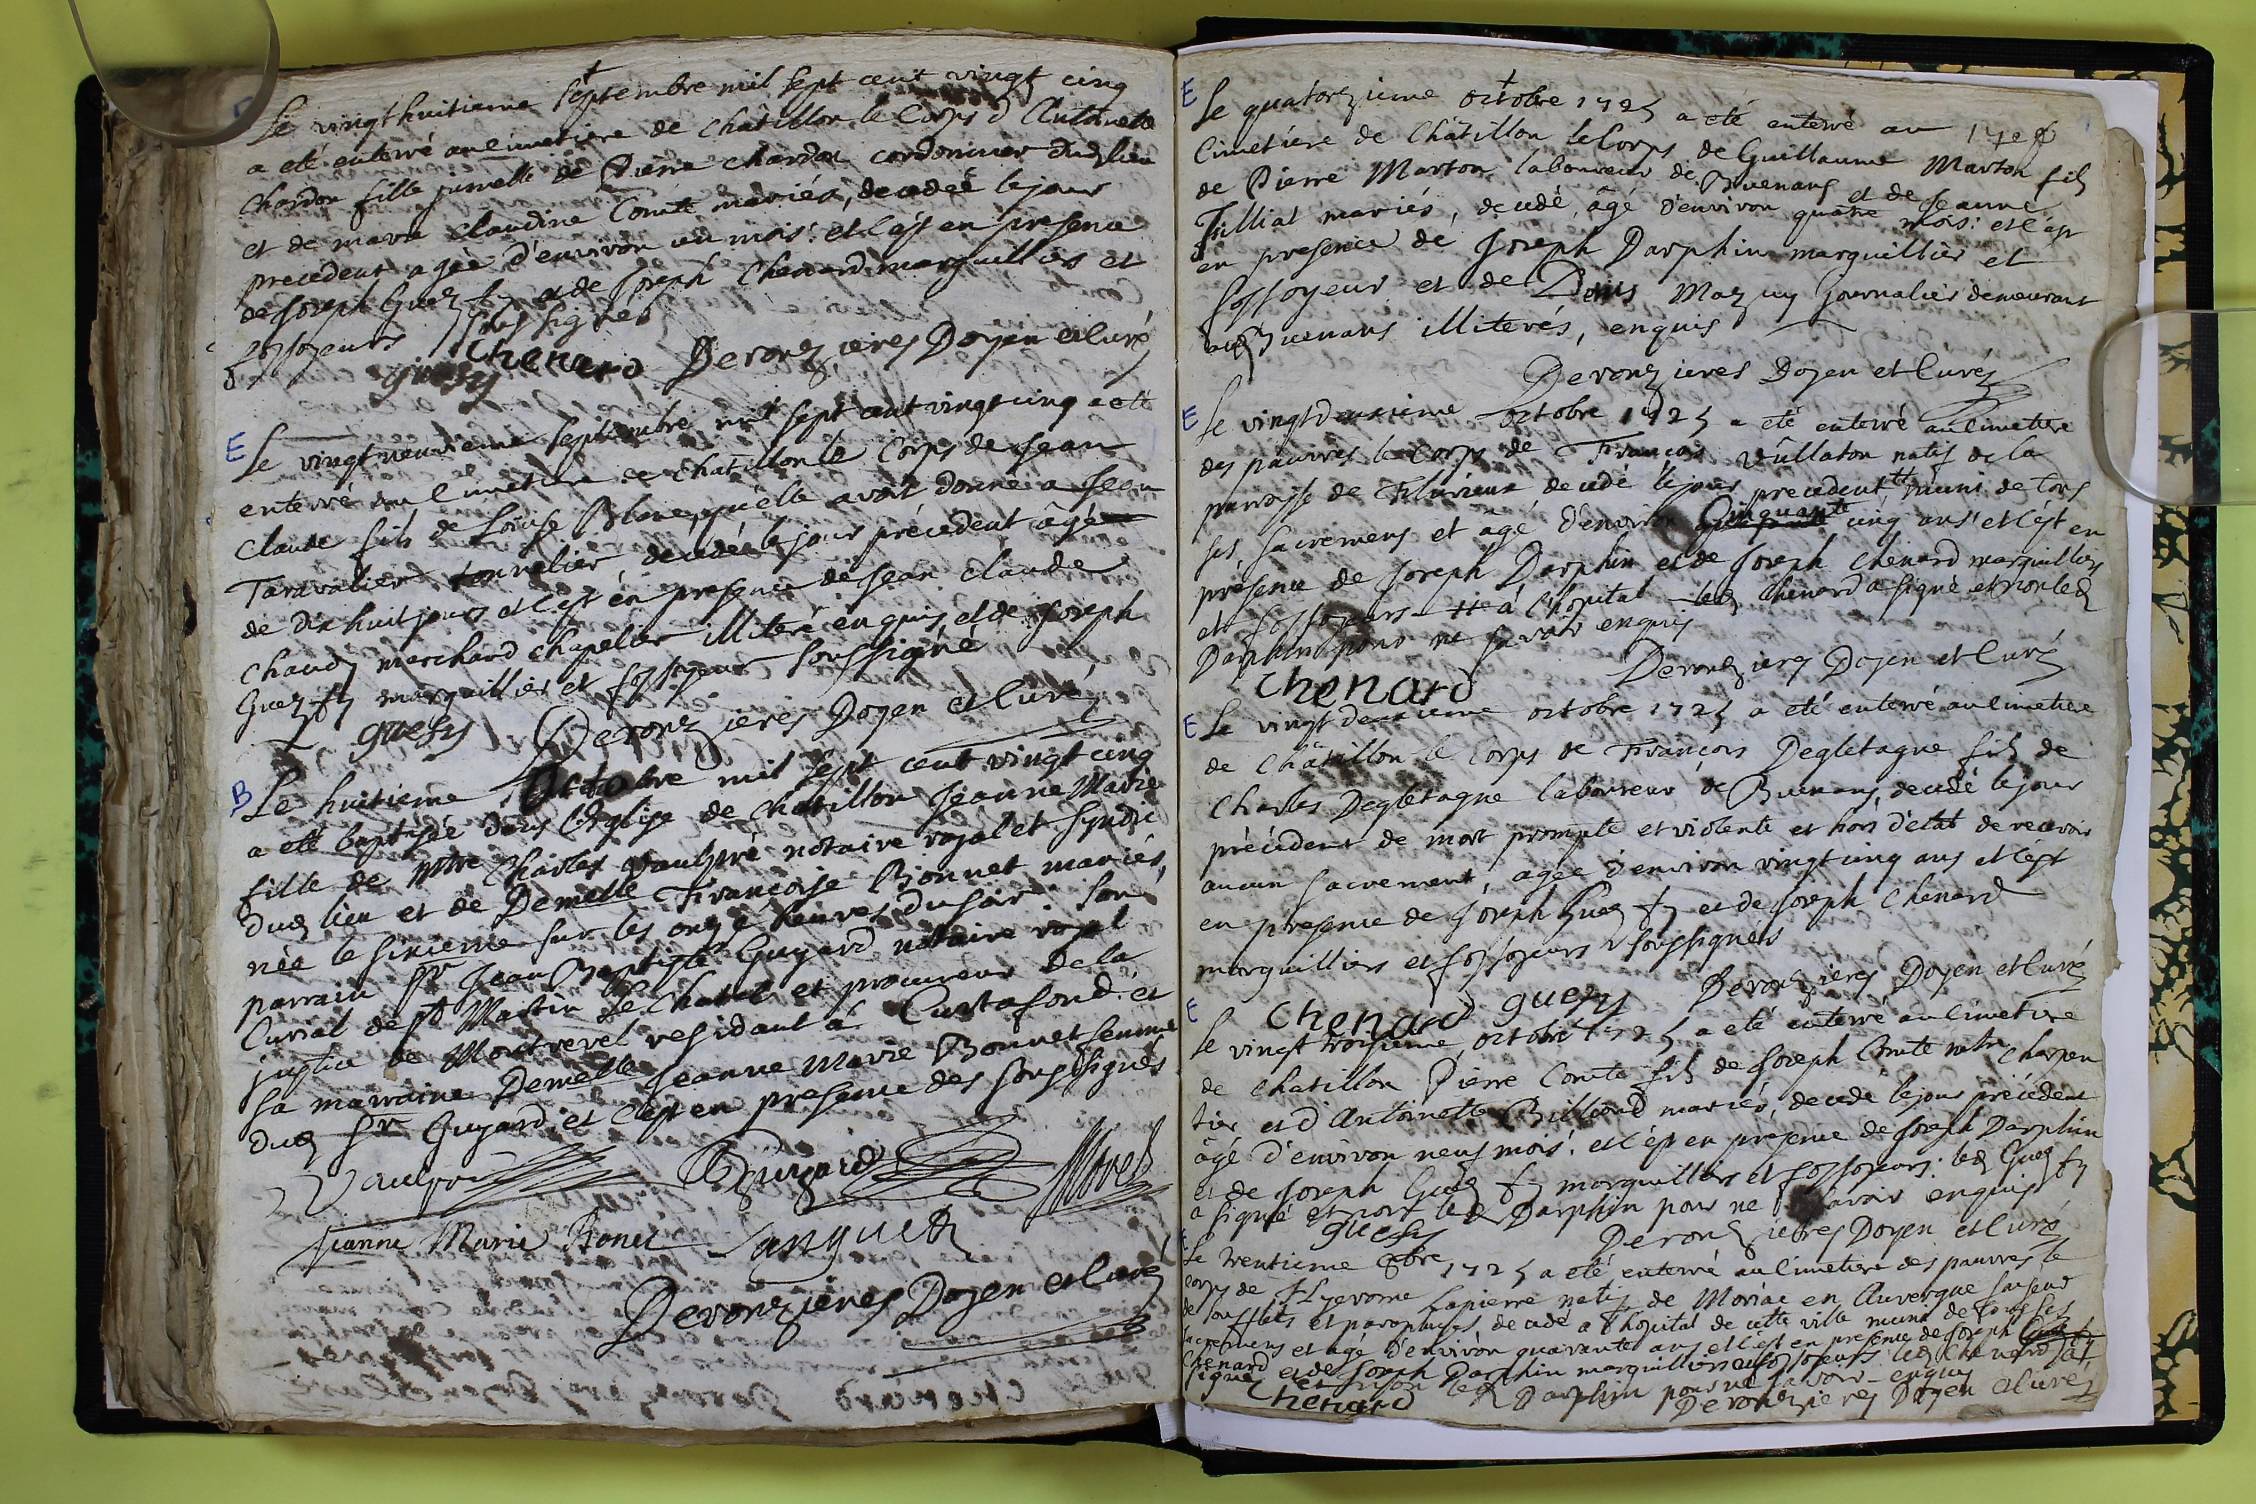 Le vingt huitieme septembre mil sept cent vingt cinq
a eté enterré au Cimetiere de Châtillon le Corps d'Antoinete
Chardon fille jumelle de Pierre chardon cordonnier dud lieu
et de marie Claudine Comte mariés, decedeé le jour
precedent agèe d'environ un mois: et c'est en presence
de Joseph Guezfy et de Joseph Chenard marguilliers et
fossoyeurs soussignés
guesfy Chenard Deronzieres Doyen et Curé
E Le vingt neuvieme septembre mil sept cent vingt cinq a eté
enterré au Cimetiere de Chatillon le Corps de Jean
Claude fils de Loüise Blanc, qu'elle avoit donné a Jean
Taravalier tonnelier, decedé le jour précedent âgé
de dix huit jours et c'est en presence de Jean Claude
Chaudy marchand chapelier illiteré enquis, et de Joseph
Guezfy marguillier et fossoyeur soussigné
guesfy Deronzieres Doyen et Curé
B Le huitieme Octobre mil sept cent vingt cinq
a eté baptisèe dans l'Eglise de Chatillon Jeanne Marie
fille de Mtre Charles Vaulpré notaire royal et syndic
dud lieu et de Demelle Françoise Bonnet mariés,
nèe le sixieme sur les onze heures du soir. Son
parrain Sr Jean Baptiste Guyard notaire royal
Curial de St Martin le Chatel et procureur de la
justice de Montrevel residant à Curtafond. et
sa marraine Demelle Jeanne Marie Bonnet femme
dud Sr Guyard; et c'est en presence des soussignés
Vaulpré Guyard Morel
Jeanne Marie Bonet Janguet
Deronzieres Doyen et Curé
E Le quatorzieme octobre 1725 a eté enterré au
Cimetiére de Châtillon le Corps de Guillaume Marton fils
de Pierre Marton laboureur de Buenans et de Jeanne
Trilliat mariés, decedé, âgé d'environ quatre mois: et c'est
en presence de Joseph Darphin marguillièr et
fossoyeur et de Denis Mazuy journalièr demeurant
aud Buenans illiterés, enquis
Deronzieres Doyen et Curé
E Le vingt deuxieme octobre 1725 a eté enterré au Cimetiere
des pauvres le Corps de François Vûllaton natif de la
parroisse de Flurieux decedé le jour precedent, tt muni de tous
ses sacremens et âgé d'environ Cinquante cinq ans: et c'est en
présence de Joseph Darphin et de Joseph Chenard marguilliers
et fossoyeurs tt à l'hopital led Chenard a signé et non led
Darphin pour ne savoir enquis
Chenard Deronzieres Doyen et Curé
E Le vingt deuxieme octobre 1725 a eté enterré au Cimetiere
de Châtillon le Corps de François Degletagne fils de
Charles Degletagne laboureur de Buenans, decedé le jour
précedent de mort prompte et violente et hors d'état de recevoir
aucun sacrement, agée d'environ vingt cinq ans et c'est
en presence de Joseph Guezfy et de Joseph Chenard
marguilliers et fossoyeurs soussignés
Chenard guesfy Deronzieres Doyen et Curé
E Le vingt troisieme octobre 1725 a eté enterré au Cimetiere
de Chatillon Pierre Comte fils de Joseph Comte mtre charpen
tier et d'Antoinette Billioud mariés, decedé le jour précedent
âgé d'environ neuf mois: et c'est en presence de Joseph Darphin
et de Joseph Guezfy marguilliers et fossoyeurs: led Guezfy
a signé et non led Darphin pour ne savoir enquis
guesfy Deronzieres Doyen et Curé
E Le trentieme 8bre 1725 a eté enterré au Cimetiere des pauvres le
corps de Hyerome Lapierre natif de Moriac en Auvergne faiseur
de soufflets et parapluyes, decedé a l'hopital de cette ville muni de tous ses
sacremens et agé d'environ quarante ans et c'est en presence de Joseph
Chenard et de Joseph Darphin marguilliers et fossoyeurs led Chenard a
signé et non led Darphin pour ne savoir enquis
Chenard Deronzieres Doyen et Curé